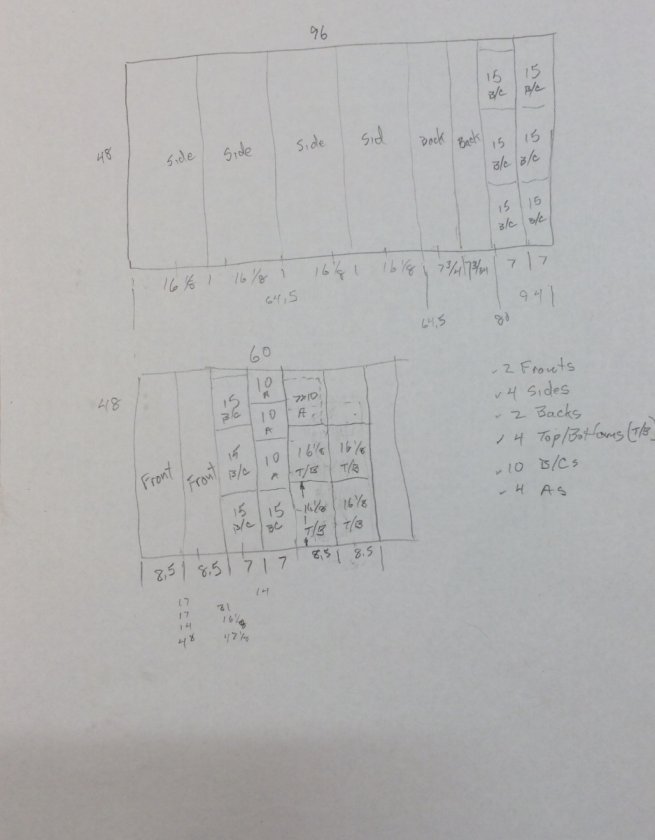 96
48
Side Side Side Sid Back Back
15 B/C 15 B/C
15 B/C 15 B/C
15 B/C 15 B/C
16 1/8 16 1/8 16 1/8 16 1/8 7 3/4 7 3/4 7 7
64,5 64,5 80 94
60
48
Front Front
15 B/C 10 A 10 A
10 A
15 B/C 10 A 16 1/8 T/B 16 1/8 T/B
15 B/C 15 BC 16 1/8 T/B 16 1/8 T/B
8,5 8,5 7 7 8,5 8,5
14
17
17
14
48
31
16 1/8
47 1/8
✓ 2 Fronts
✓ 4 Sides
✓ 2 Backs
✓ 4 Top/Bottoms (T/B)
✓ 10 B/Cs
✓ 4 As